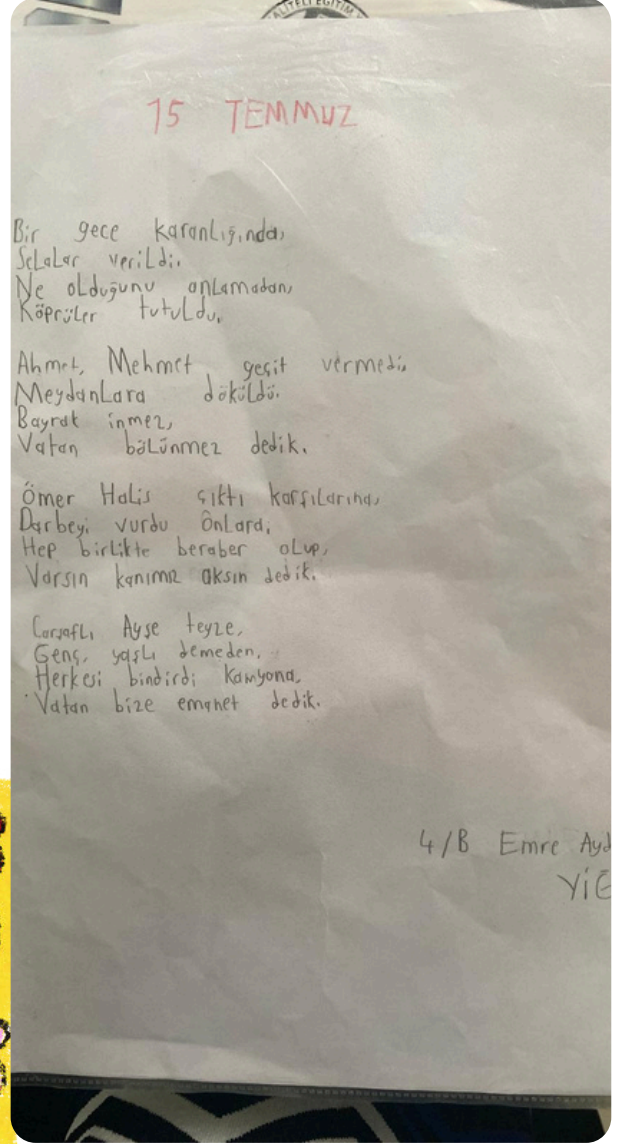 ALİTELİ EĞİTİM
15 TEMMUZ
Bir gece karanlığında,
Selalar verildi.
Ne olduğunu anlamadan,
Köprüler tutuldu.
Ahmet, Mehmet geçit vermedi,
Meydanlara döküldü.
Bayrak inmez,
Vatan bölünmez dedik.
Ömer Halis çıktı karşılarına,
Darbeyi vurdu onlara,
Hep birlikte beraber olup,
Varsın kanımız aksın dedik.
Çarşaflı Ayşe teyze,
Genç, yaşlı demeden,
Herkesi bindirdi kamyona,
Vatan bize emanet dedik.
4/B Emre Ayd
YİĞ